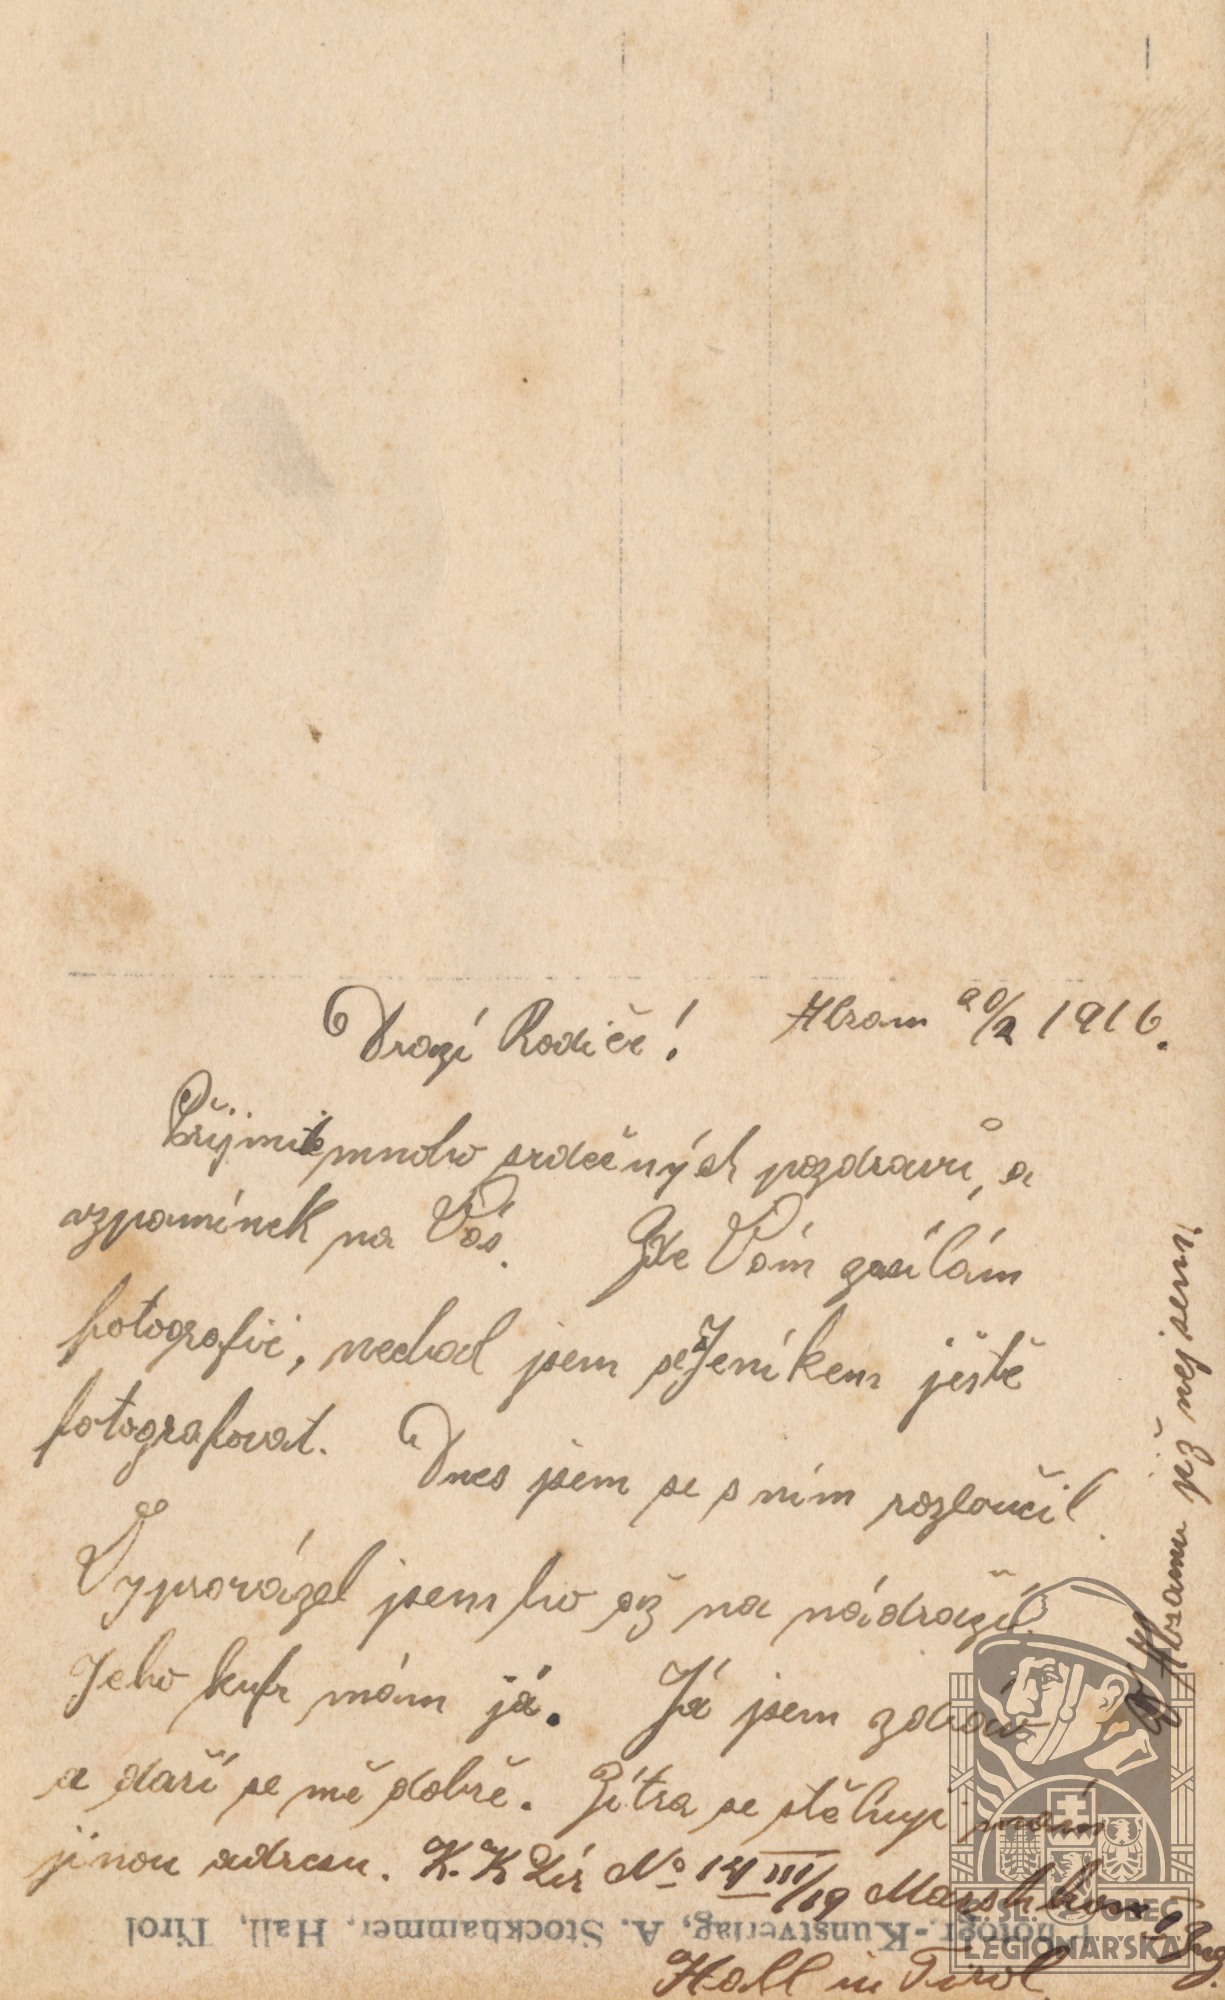 Drazí Rodiče! Absam 20/2 1916.
Přijmite mnoho srdečných pozdravů, a
vzpomínek na Vás. Zde Vám zasílám
fotografii, nechal jsem se s Jeníkem ještě
fotografovat. Dnes jsem se s ním rozloučil.
Vyprovázel jsem ho až na nádraží.
Jeho kufr mám já. Já jsem zdráv
a daří se mě dobře. Zítra se stěhuji mám
jinou adresu. K. K. Lir No 14 III/19 Marschkomp
Hall in Tirol
V Absamu již nejsem.
Photogr.-Kunstverlag, A. Stockhammer, Hall, Tirol
ČSL. OBEC
LEGIONÁŘSKÁ